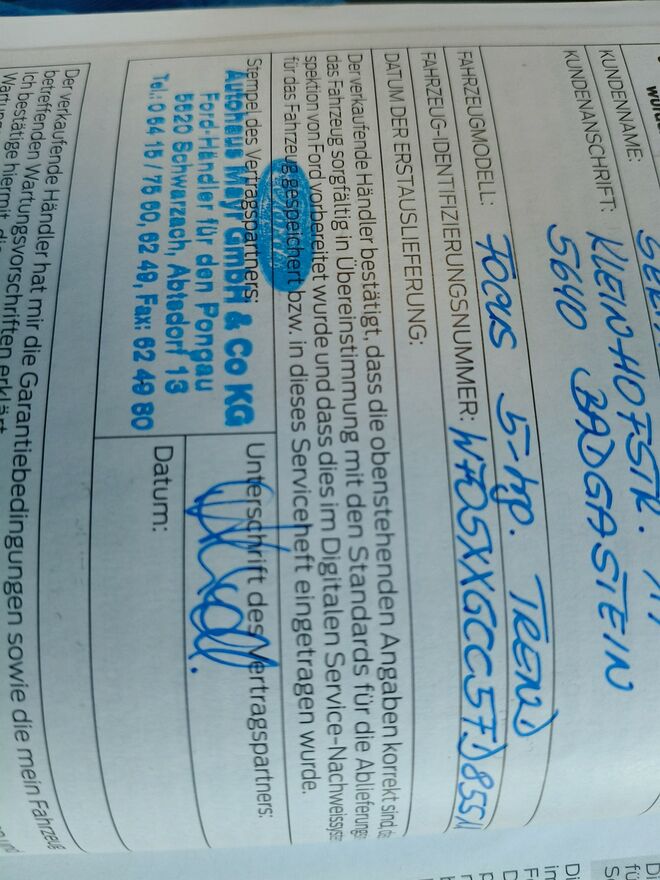 KUNDENNAME:
KUNDENANSCHRIFT: KLEINHOFSTR.
5640 BADGASTEIN
FAHRZEUGMODELL: FOCUS 5-trg. TREND
FAHRZEUG-IDENTIFIZIERUNGSNUMMER: WF05XXGCC5FD855
DATUM DER ERSTAUSLIEFERUNG:
Der verkaufende Händler bestätigt, dass die obenstehenden Angaben korrekt sind,
das Fahrzeug sorgfältig in Übereinstimmung mit den Standards für die Ablieferungs
spektion von Ford vorbereitet wurde und dass dies im Digitalen Service-Nachweissyste
für das Fahrzeug gespeichert bzw. in dieses Serviceheft eingetragen wurde.
Stempel des Vertragspartners:
Unterschrift des Vertragspartners:
Autohaus Mayr GmbH & Co KG
Ford-Händler für den Pongau
5620 Schwarzach, Abtsdorf 13
Tel.: 0 64 15 / 75 60, 62 49, Fax: 62 49 80
Datum:
Der verkaufende Händler hat mir die Garantiebedingungen sowie die mein Fahrzeug
betreffenden Wartungsvorschriften erklärt.
Ich bestätige hiermit, die